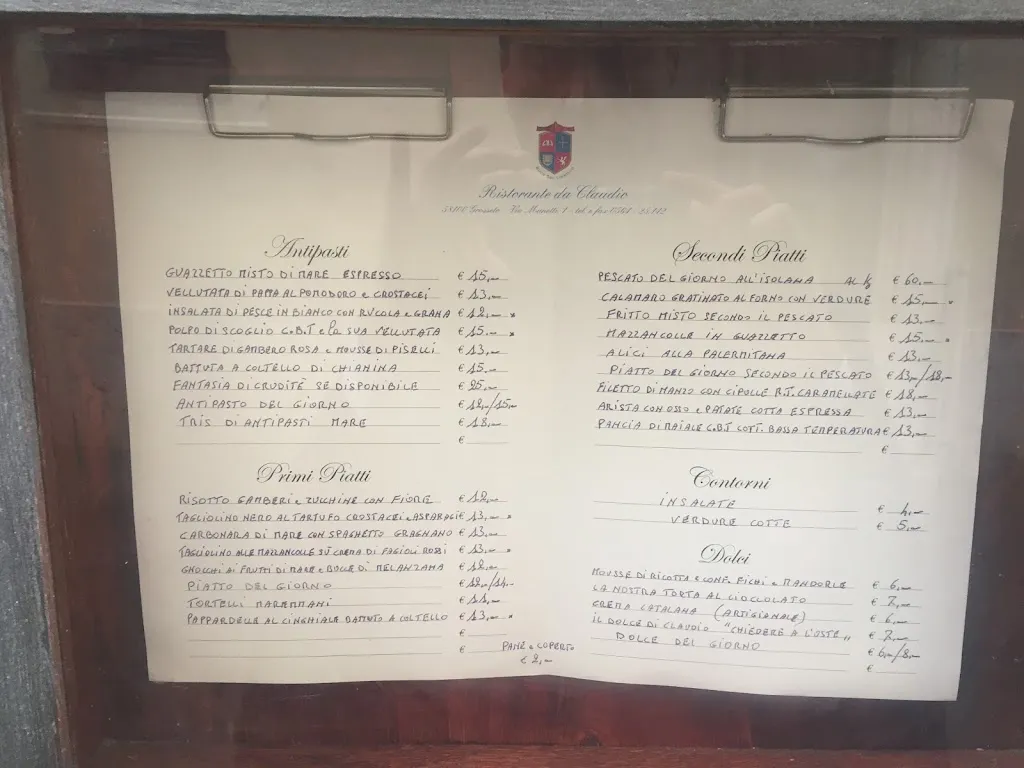 Ristorante da Claudio
58100 Grosseto - Via Manetti, 1 - tel. e fax 0564 - 25.142
Antipasti
GUAZZETTO MISTO DI MARE ESPRESSO € 15,—
VELLUTATA DI PAPPA AL POMODORO e CROSTACEI € 13,—
INSALATA DI PESCE IN BIANCO CON RUCOLA e GRANA € 12,— *
POLPO DI SCOGLIO C.B.T e la SUA VELLUTATA € 15,— *
TARTARE DI GAMBERO ROSA e MOUSSE DI PISELLI € 13,—
BATTUTA A COLTELLO DI CHIANINA € 15,—
FANTASIA DI CRUDITÉ SE DISPONIBILE € 25,—
ANTIPASTO DEL GIORNO € 12,—/15,—
TRIS DI ANTIPASTI MARE € 18,—
€
Primi Piatti
RISOTTO GAMBERI e ZUCCHINE CON FIORE € 12,—
TAGLIOLINO NERO AL TARTUFO CROSTACEI e ASPARAGI € 13,— *
CARBONARA DI MARE CON SPAGHETTO GRAGNANO € 13,—
TAGLIOLINO ALLE MAZZANCOLLE SU CREMA DI FAGIOLI ROSSI € 13,— *
GNOCCHI AI FRUTTI DI MARE e DOLCE DI MELANZANA € 12,—
PIATTO DEL GIORNO € 12,—/14,—
TORTELLI MAREMMANI € 11,—
PAPPARDELLE AL CINGHIALE BATTUTO A COLTELLO € 13,— *
€
€
PANE e COPERTO
€ 2,—
Secondi Piatti
PESCATO DEL GIORNO ALL'ISOLANA AL Kg € 60,—
CALAMARO GRATINATO AL FORNO CON VERDURE € 15,— *
FRITTO MISTO SECONDO IL PESCATO € 13,—
MAZZANCOLLE IN GUAZZETTO € 15,— *
ALICI ALLA PALERMITANA € 13,—
PIATTO DEL GIORNO SECONDO IL PESCATO € 13,—/18,—
FILETTO DI MANZO CON CIPOLLE R.T. CARAMELLATE € 18,—
ARISTA CON OSSO e PATATE COTTA ESPRESSA € 13,—
PANCIA DI MAIALE C.B.T COTT. BASSA TEMPERATURA € 13,—
€
Contorni
INSALATE € 4,—
VERDURE COTTE € 5,—
Dolci
MOUSSE DI RICOTTA e CONF. FICHI e MANDORLE € 6,—
LA NOSTRA TORTA AL CIOCCOLATO € 7,—
CREMA CATALANA (ARTIGIANALE) € 6,—
IL DOLCE DI CLAUDIO "CHIEDERE A L'OSTE" € 7,—
DOLCE DEL GIORNO € 6,—/8,—
€